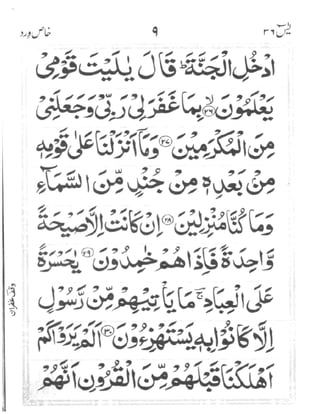 یٰسٓ ۳۶ ۹ خاص ورد
ادْخُلِ الْجَنَّةَ ؕ قَالَ يٰلَيْتَ قَوْمِيْ
يَعْلَمُوْنَ ۙ﴿۲۶﴾ بِمَا غَفَرَ لِيْ رَبِّيْ وَجَعَلَنِيْ
مِنَ الْمُكْرَمِيْنَ ﴿۲۷﴾ وَمَاۤ اَنْزَلْنَا عَلٰى قَوْمِهٖ
مِنْۢ بَعْدِهٖ مِنْ جُنْدٍ مِّنَ السَّمَآءِ
وَمَا كُنَّا مُنْزِلِيْنَ ﴿۲۸﴾ اِنْ كَانَتْ اِلَّا صَيْحَةً
وَّاحِدَةً فَاِذَا هُمْ خٰمِدُوْنَ ﴿۲۹﴾ يٰحَسْرَةً
عَلَى الْعِبَادِ ۚ مَا يَاْتِيْهِمْ مِّنْ رَّسُوْلٍ
اِلَّا كَانُوْا بِهٖ يَسْتَهْزِءُوْنَ ﴿۳۰﴾ اَلَمْ يَرَوْا كَمْ
اَهْلَكْنَا قَبْلَهُمْ مِّنَ الْقُرُوْنِ اَنَّهُمْ
وقف غفران